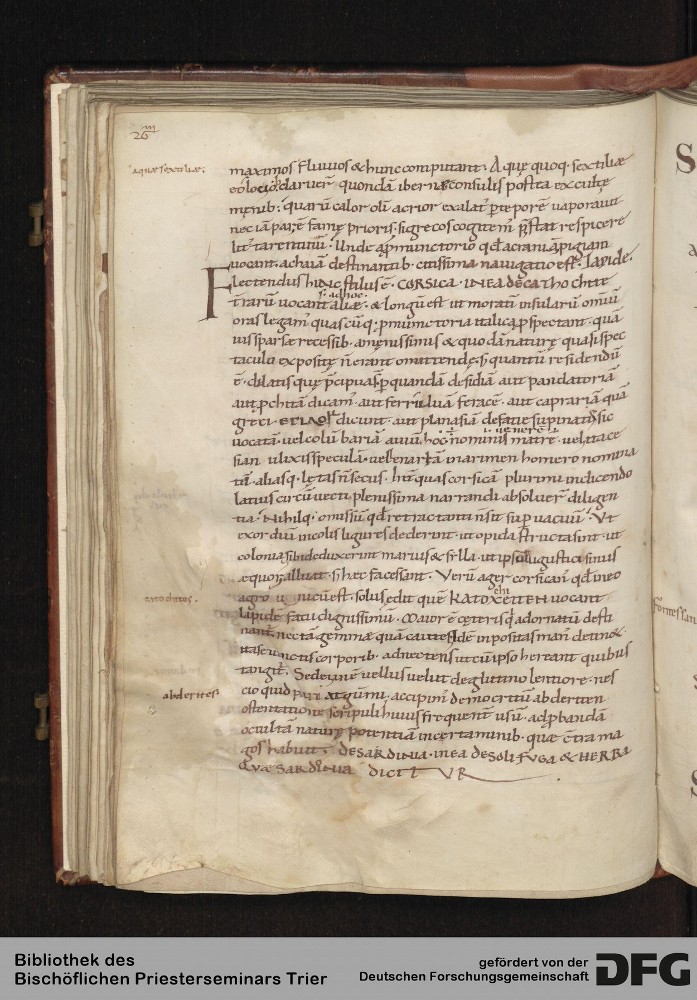 26
aquæ sextiliæ:
maximos fluvios & hunc computant. Aquę quoq· sextiliæ
eo loco claruer̄ quondā ibernacula consulis postea excultę
męnib: quarū calor olī acrior exalat' p̄ tepore uaporauit
nec iā parē famę prioris· si gręcos cogitem' p̄stat respicere
lit' tarentinū· Unde a promunctorio qd̄ acram iapigiam
uocant· achaiā destinantib· citissima nauigatio est· lapide·
Flectendus hinc stilus ē· CORSICA· IN EA DE CATHOCHITE
uocant
oras legam' quascūq; p̄munctoria italica p̄spectant· quā
uis sparsæ recessib· amęnissimis & quodā naturę quasi spec
taculo expositę n̄ erant omittendę· s; quantū residendū
ē· dilatis quę p̄cipua s̄ p̄ quandā desidiā aut pandatoriā
aut p̄chitā dicam' aut ferri iluā feracē· aut caprariā quā
greci· dicunt· aut planasiā de facie supinata sic
uocatā· uel columbariā auiū hoc nominis matrē· uel ithace
siam ulixis speculā· uel enariā inarimen homero nomina
tā· aliasq· lętas n̄ secus· Int' quas corsicā plurimi in dicendo
latius circū uecti plenissima narrandi absoluer̄ diligen
tia· Nihilq; omissū qd̄ retractari n̄ sit sup̄ uacuū· Ut
exordiū incolis ligures dederint· ut opida structa sint· ut
colonias ibi deduxerint marius & sylla· ut ipsū ligustici sinus
æquor alluat· s; hæc facessant· Verū ager corsican' qd̄ in eo
catochites·
agro unicū est· solus edit quē KATOXEITEN uocant
lapidē fatu dignissimū· Maior ē cęteris q̄ ad ornatū desti
nant̄· nec tā gemma quā cautes· Idē inpositas man' detin&·
ita se iunctis corporib· adnectens ut cū ipso hereant quibus
tangit̄· Sed ei inē uellus uelut de glutino lentiore· nes
abderites
cio quid par atq; gūmi· accipim' democritū abderiten
ostentatione scripuli huius frequent̄ usū· ad p̄bandā
occultā naturę potentiā in certaminib· quæ contra ma
gos habuit· DE SARDINIA· IN EA DE SOLIFUGA & HERBA
QUÆ SARDONIA DICITUR
Bibliothek des
Bischöflichen Priesterseminars Trier
gefördert von der
Deutschen Forschungsgemeinschaft
DFG